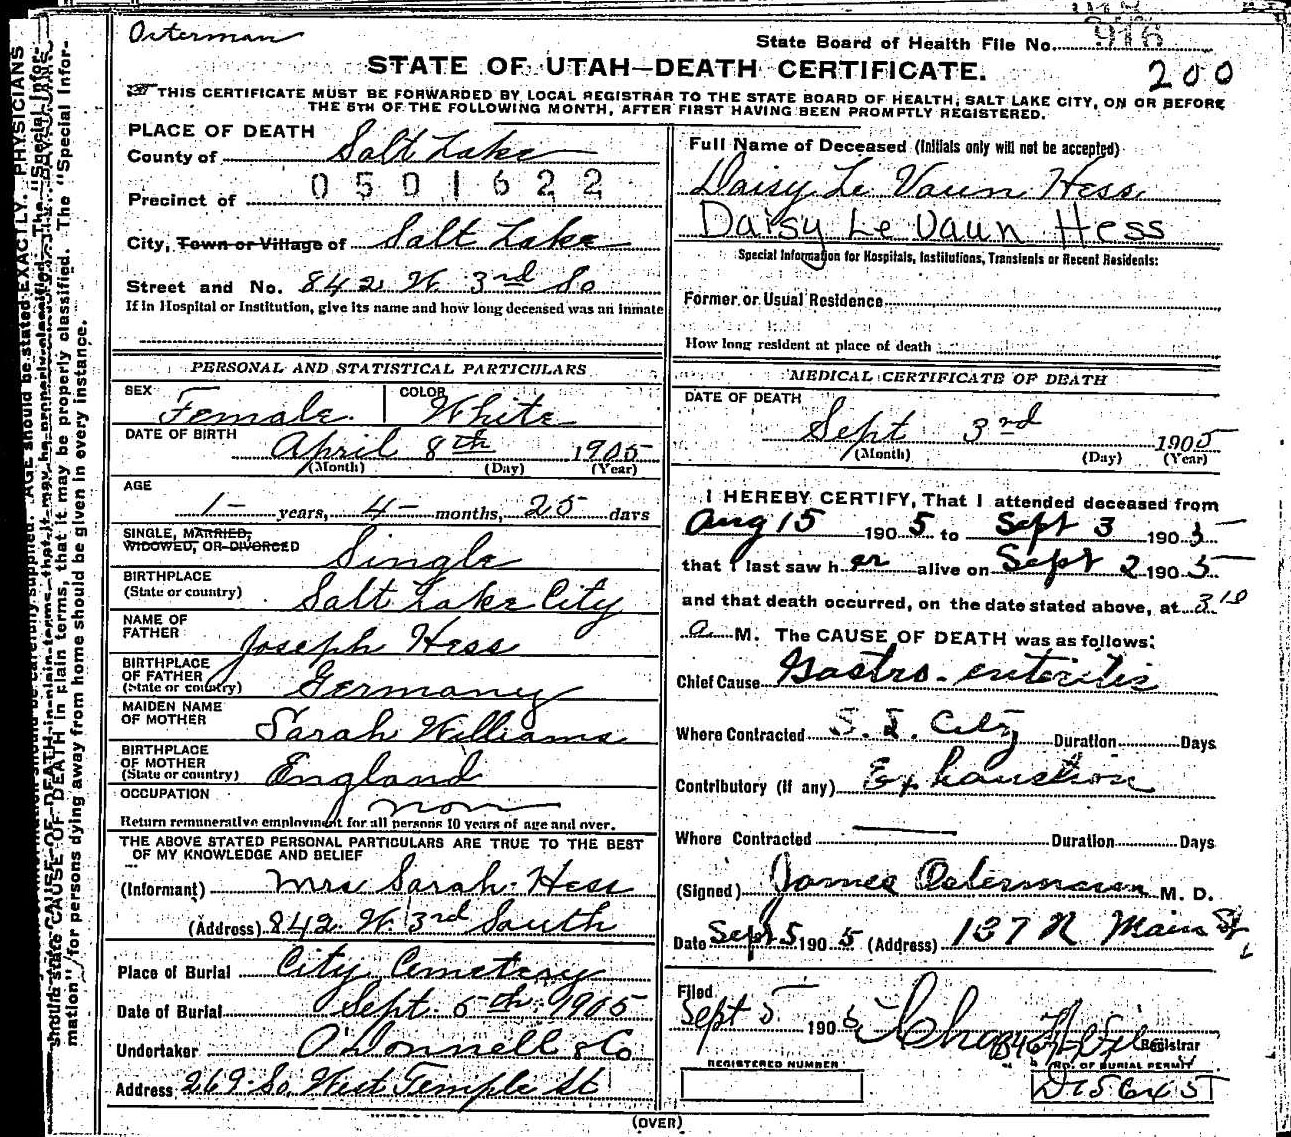 Osterman
State Board of Health File No. 916
200
STATE OF UTAH—DEATH CERTIFICATE.
THIS CERTIFICATE MUST BE FORWARDED BY LOCAL REGISTRAR TO THE STATE BOARD OF HEALTH, SALT LAKE CITY, ON OR BEFORE
THE 5TH OF THE FOLLOWING MONTH, AFTER FIRST HAVING BEEN PROMPTLY REGISTERED.
PLACE OF DEATH
County of Salt Lake
0501622
Precinct of
City, Town or Village of Salt Lake
Street and No. 842 W. 3rd So
If in Hospital or Institution, give its name and how long deceased was an inmate
PERSONAL AND STATISTICAL PARTICULARS
SEX Female. COLOR White
DATE OF BIRTH April 8th 1905
(Month) (Day) (Year)
AGE
1- years, 4- months, 25 days
SINGLE, MARRIED,
WIDOWED, OR DIVORCED Single
BIRTHPLACE
(State or country) Salt Lake City
NAME OF
FATHER Joseph Hess
BIRTHPLACE
OF FATHER
(State or country) Germany
MAIDEN NAME
OF MOTHER Sarah Williams
BIRTHPLACE
OF MOTHER
(State or country) England
OCCUPATION non
Return remunerative employment for all persons 10 years of age and over.
THE ABOVE STATED PERSONAL PARTICULARS ARE TRUE TO THE BEST
OF MY KNOWLEDGE AND BELIEF
(Informant) Mrs Sarah Hess
(Address) 842 W. 3rd South
Place of Burial City Cemetery
Date of Burial Sept. 5th 1905
Undertaker O'Donnell & Co
Address 269 So. West Temple St
Full Name of Deceased (Initials only will not be accepted)
Daisy Le Vaun Hess
Daisy Le Vaun Hess
Special Information for Hospitals, Institutions, Transients or Recent Residents:
Former or Usual Residence
How long resident at place of death
MEDICAL CERTIFICATE OF DEATH
DATE OF DEATH
Sept 3rd 1905
(Month) (Day) (Year)
I HEREBY CERTIFY, That I attended deceased from
Aug 15 190 5 to Sept 3 190 5
that I last saw h er alive on Sept 2 190 5
and that death occurred, on the date stated above, at 3 10
a M. The CAUSE OF DEATH was as follows:
Chief Cause Gastro-enteritis
Where Contracted S. L. City Duration Days
Contributory (If any) Exhaustion
Where Contracted — Duration Days
(Signed) James Ostermann M. D.
Date Sept 5 190 5 (Address) 137 N Main St
Filed
Sept 5 190 5
Registrar
REGISTERED NUMBER
NO. OF BURIAL PERMIT
D15645
(OVER)
mation" for persons dying away from home should be given in every instance.